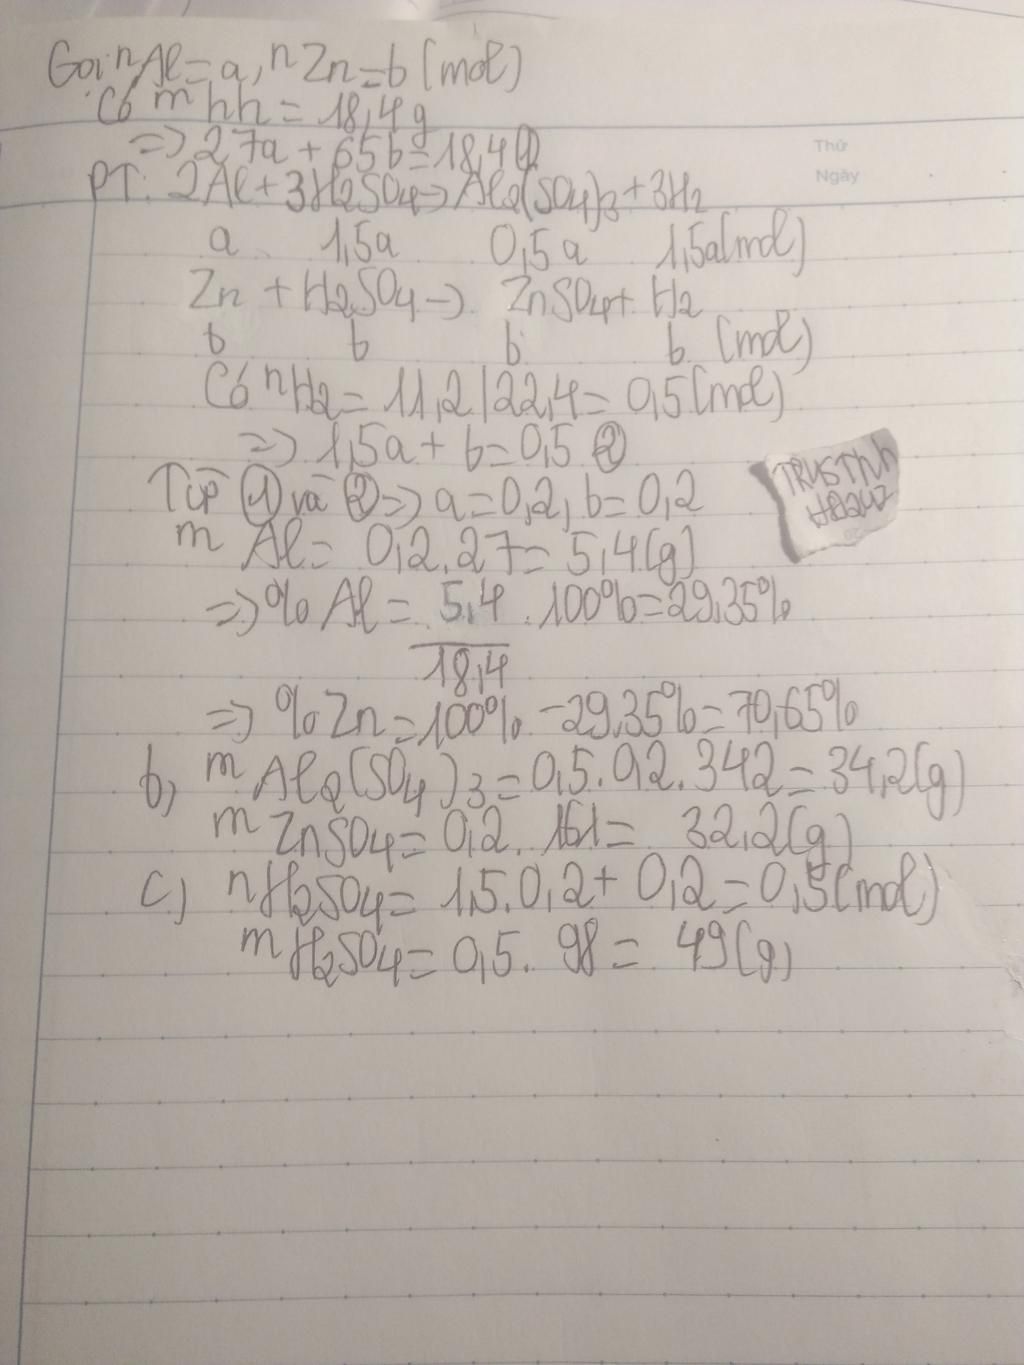 Gọi nAl = a, nZn = b (mol)
Có mhh = 18,4g
=> 27a + 65b = 18,4 (1)
PT: 2Al + 3H2SO4 -> Al2(SO4)3 + 3H2
a 1,5a 0,5a 1,5a (mol)
Zn + H2SO4 -> ZnSO4 + H2
b b b b (mol)
Có nH2 = 11,2/22,4 = 0,5 (mol)
=> 1,5a + b = 0,5 (2)
Từ (1) và (2) => a = 0,2, b = 0,2
mAl = 0,2.27 = 5,4 (g)
=> %Al = 5,4/18,4 . 100% = 29,35%
=> %Zn = 100% - 29,35% = 70,65%
b) mAl2(SO4)3 = 0,5.0,2.342 = 34,2 (g)
mZnSO4 = 0,2. 161 = 32,2 (g)
c) nH2SO4 = 1,5.0,2 + 0,2 = 0,5 (mol)
mH2SO4 = 0,5. 98 = 49 (g)
Thứ
Ngày